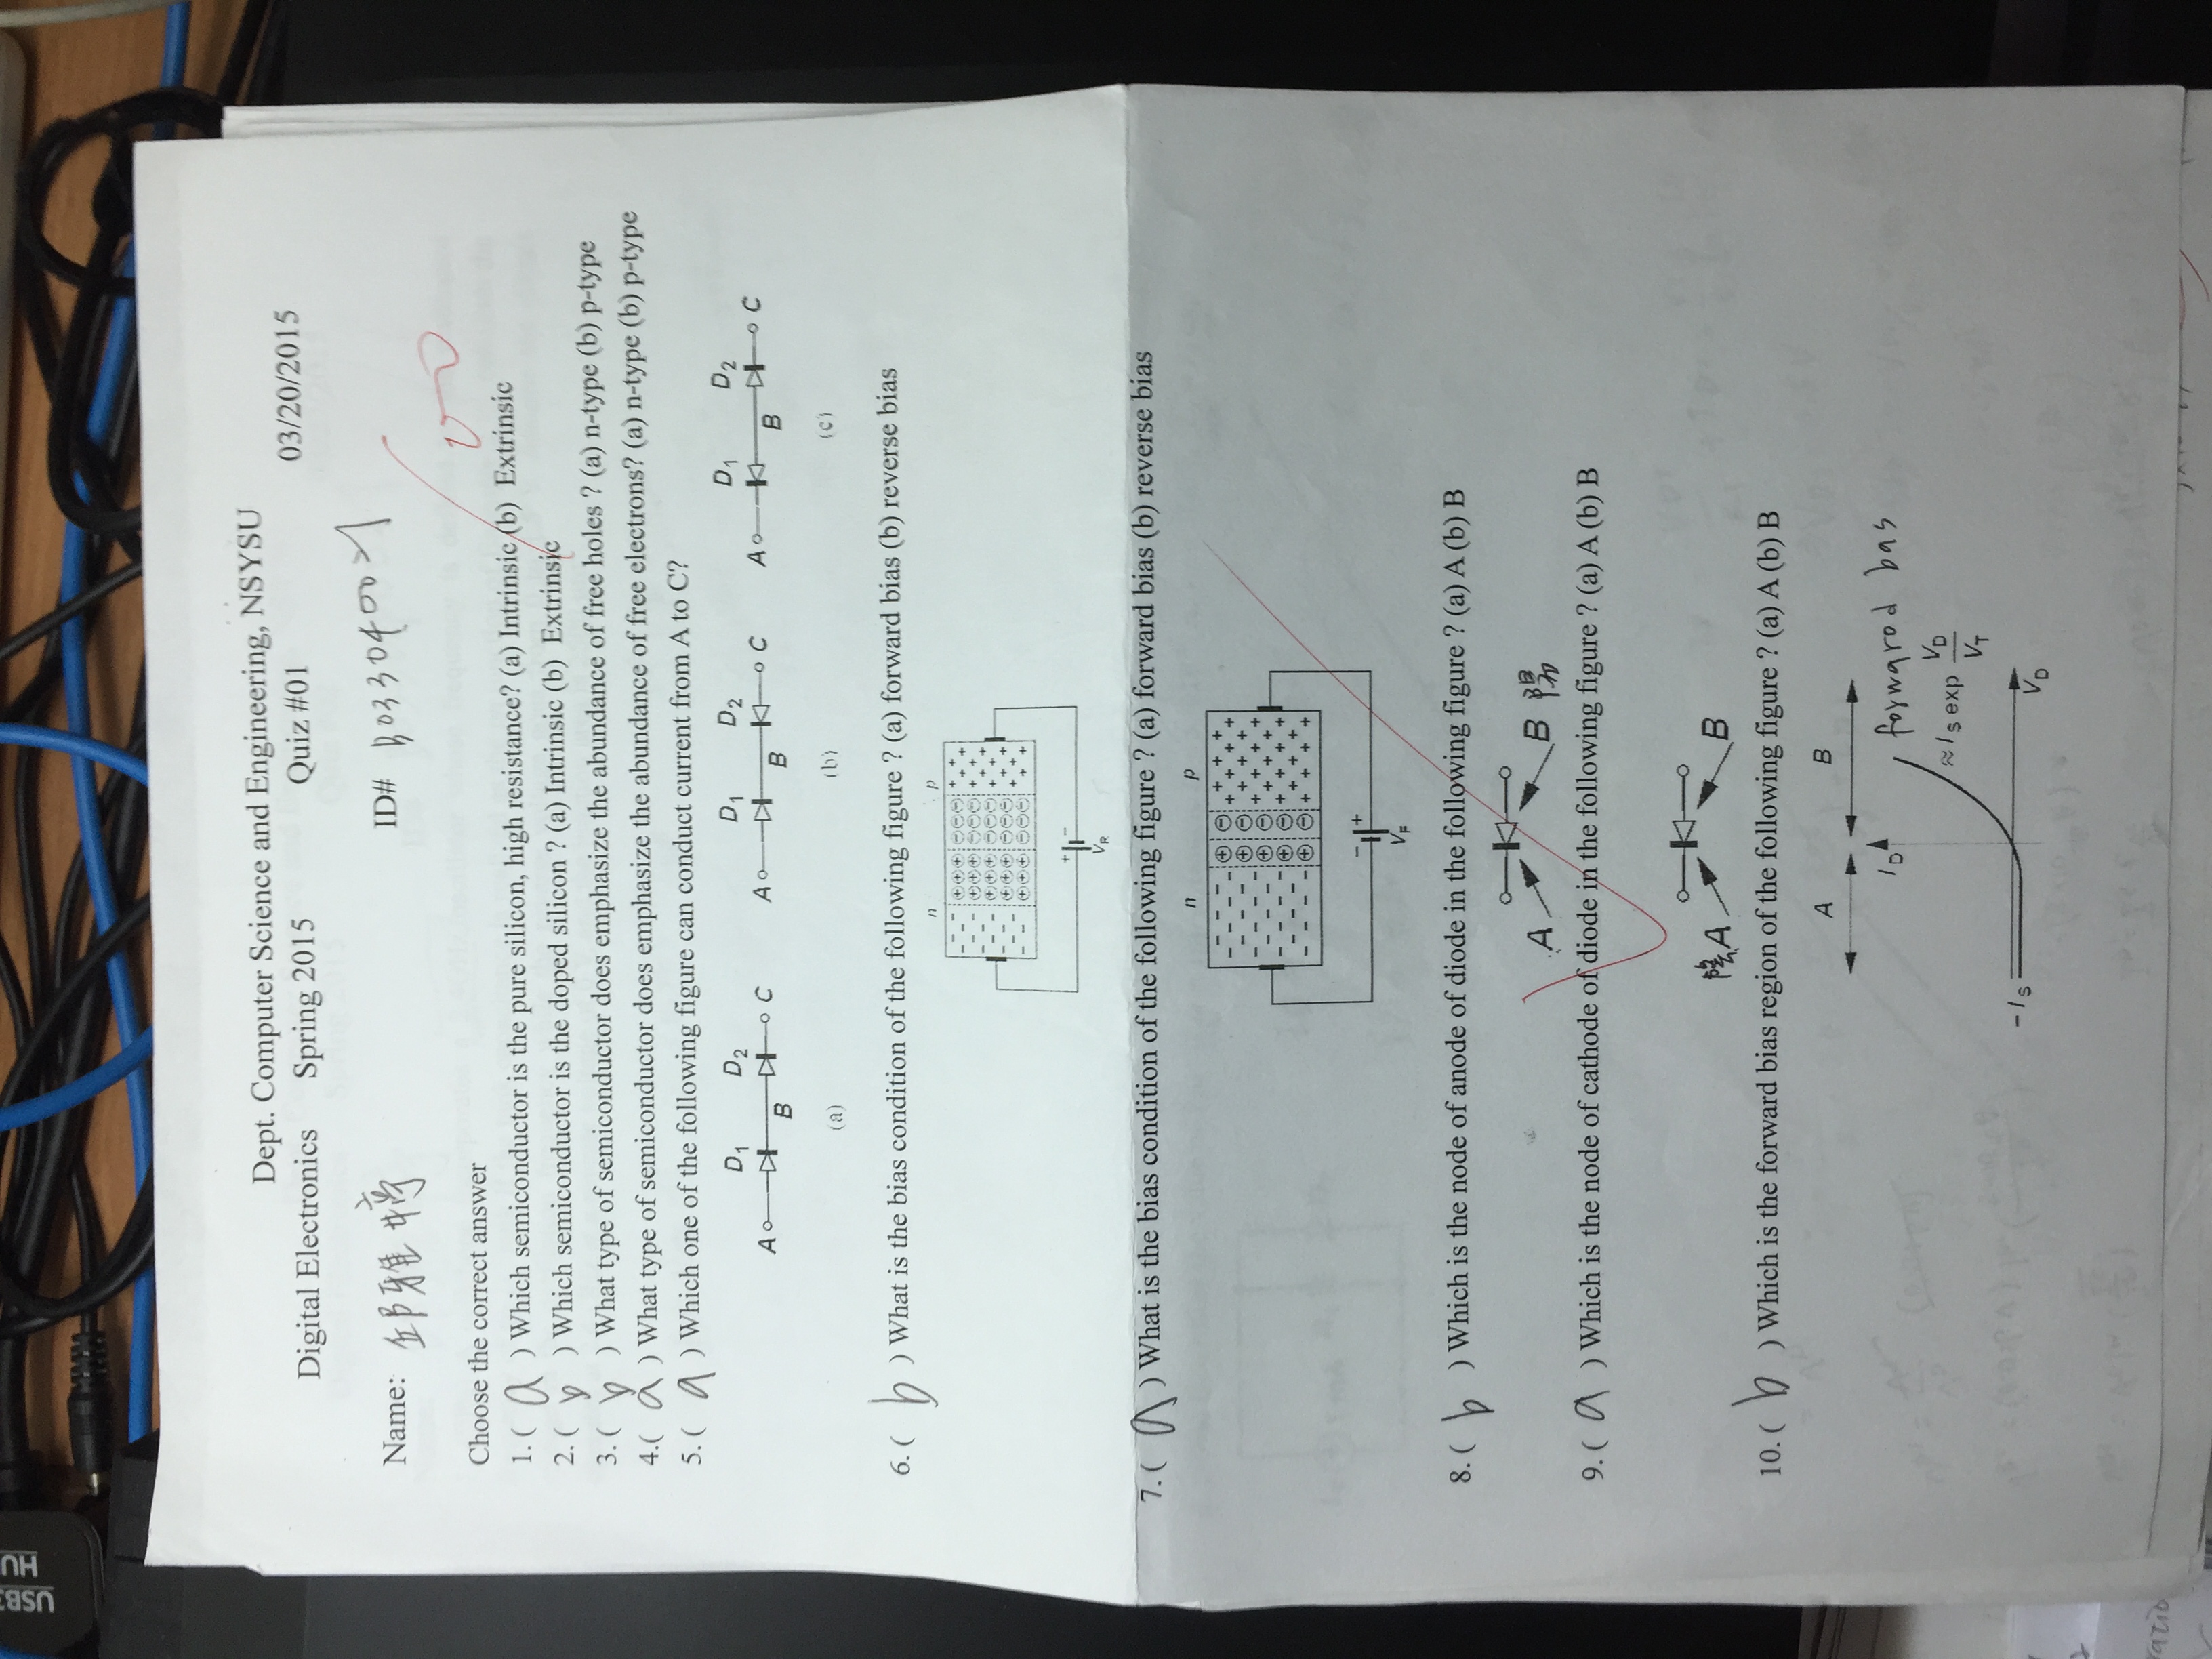 USB3
HU
Dept. Computer Science and Engineering, NSYSU
Digital Electronics Spring 2015 Quiz #01 03/20/2015
Name: 邱雅婷 ID# B033040021
100
Choose the correct answer
1. ( a ) Which semiconductor is the pure silicon, high resistance? (a) Intrinsic (b) Extrinsic
2. ( b ) Which semiconductor is the doped silicon ? (a) Intrinsic (b) Extrinsic
3. ( b ) What type of semiconductor does emphasize the abundance of free holes ? (a) n-type (b) p-type
4.( a ) What type of semiconductor does emphasize the abundance of free electrons? (a) n-type (b) p-type
5. ( a ) Which one of the following figure can conduct current from A to C?
D1 D2 D1 D2 D1 D2
A B C A B C A B C
(a) (b) (c)
6. ( b ) What is the bias condition of the following figure ? (a) forward bias (b) reverse bias
n p
+ -
VR
7. ( a ) What is the bias condition of the following figure ? (a) forward bias (b) reverse bias
n p
- +
VF
8. ( b ) Which is the node of anode of diode in the following figure ? (a) A (b) B
A B 陽
9. ( a ) Which is the node of cathode of diode in the following figure ? (a) A (b) B
A B
10. ( b ) Which is the forward bias region of the following figure ? (a) A (b) B
A B
ID forwarod bas
≈IS exp VD
VT
-IS
VD